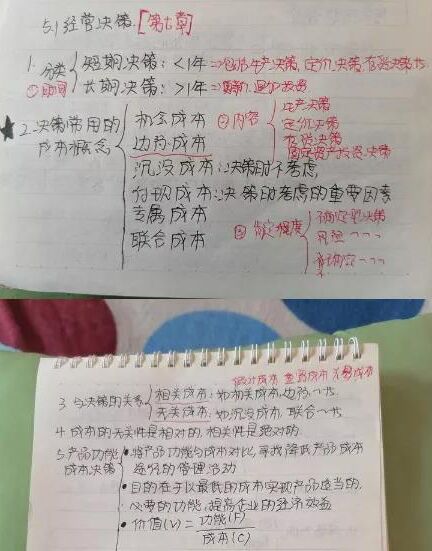 5.1 经营决策.[第七章]
1. 分类 { 短期决策:<1年⇒包括生产决策、定价决策、存货决策等
①时间 长期决策:>1年⇒
②内容 { 生产决策
定价决策
存货决策
固定资产投资决策
★2.决策常用的成本概念 { 机会成本
边际成本
沉没成本:决策时不考虑
付现成本:决策时考虑的重要因素
专属成本
联合成本
③肯定程度 { 确定型决策
风险〃〃〃
不确定〃〃〃
估计成本 重置成本 差量成本
3. 与决策的关系 { 相关成本:如机会成本、边际~书
无关成本:如沉没成本,联合~书
4. 成本的无关性是相对的,相关性是绝对的
5.产品功能成本决策 { •将产品功能与成本对比,寻找降低产品成本
途径的管理活动
•目的在于以最低的成本实现产品适当的、
必要的功能,提高企业的经济效益
•价值(V)=功能(F)/成本(C)